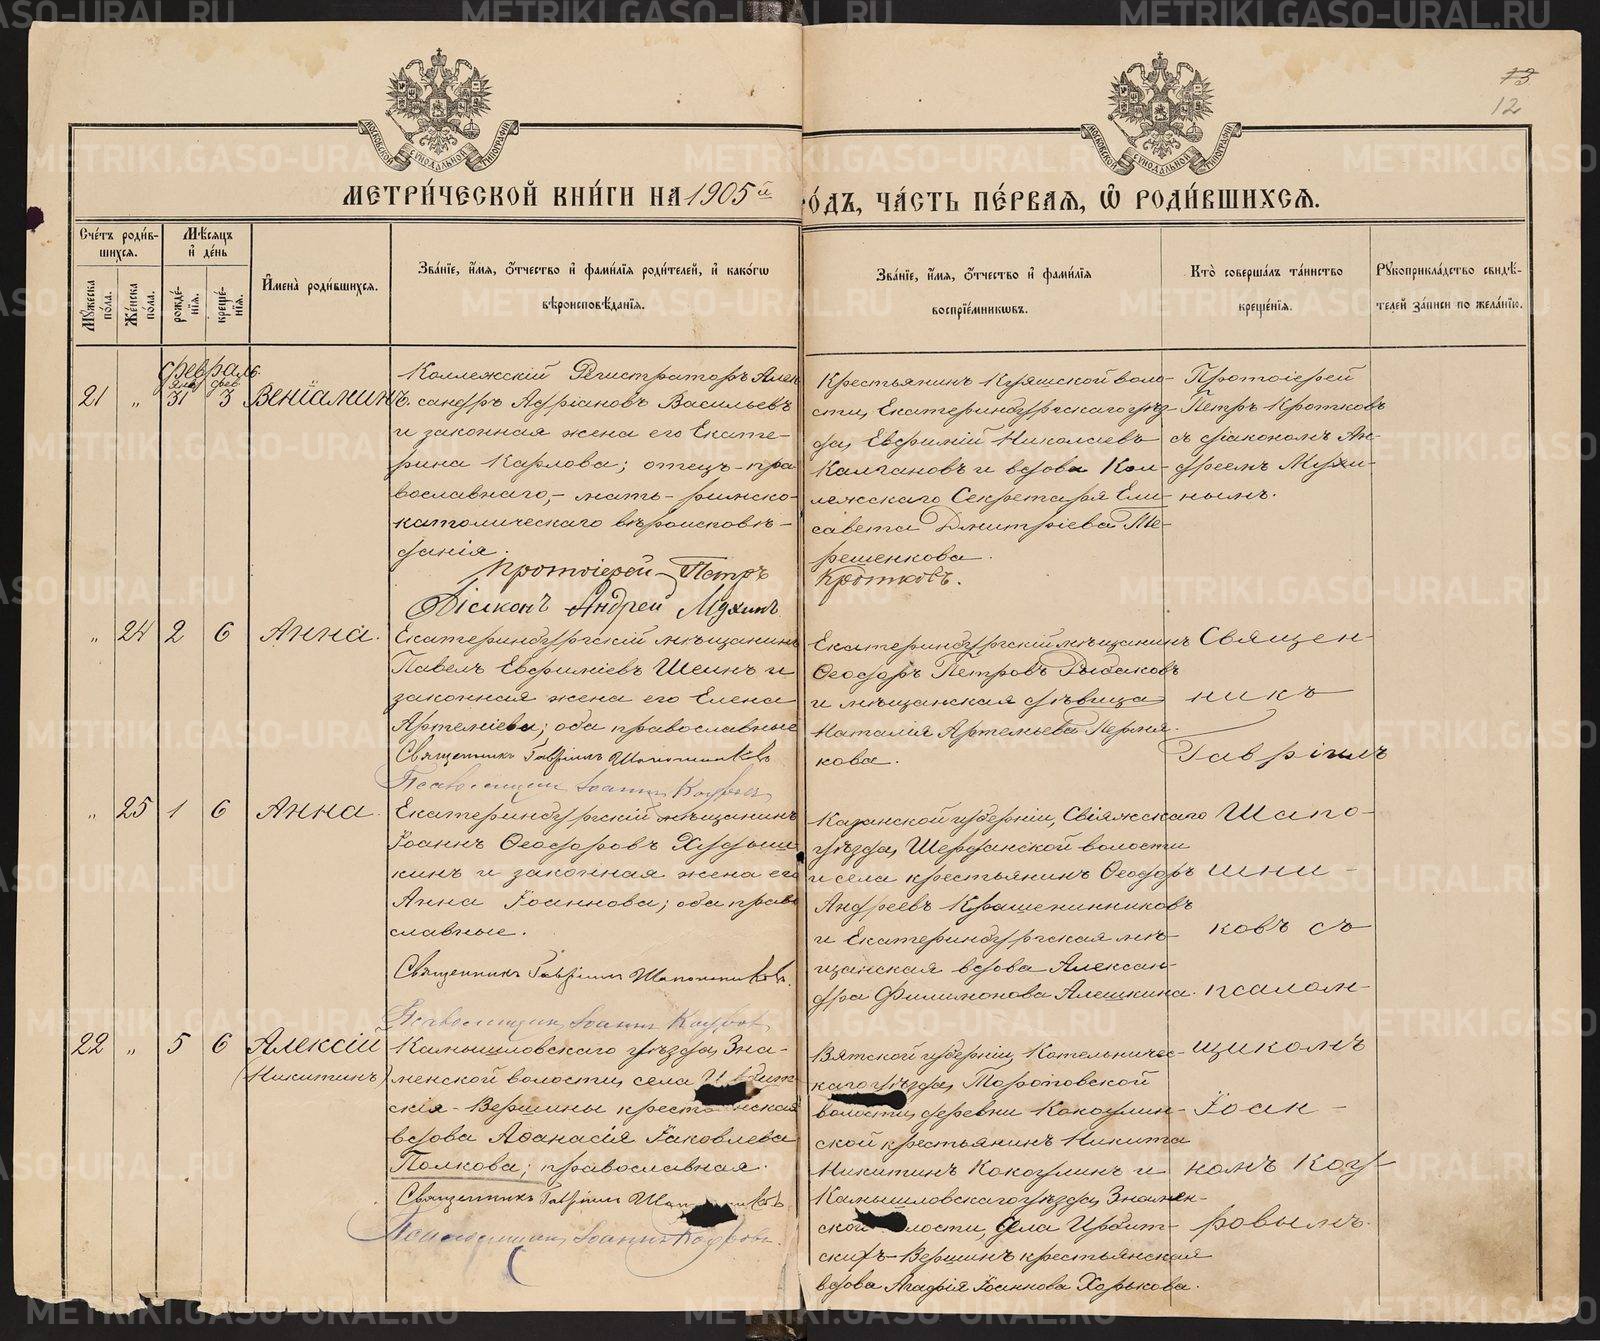 73
12
МОСКОВСКОЙ СѴНОДАЛЬНОЙ ТИПОГРАФІИ
МОСКОВСКОЙ СѴНОДАЛЬНОЙ ТИПОГРАФІИ
МЕТРИ́ЧЕСКОЙ КНИ́ГИ НА 1905й ГО́ДЪ, ЧА́СТЬ ПЕ́РВАЯ, Ѡ҆ РОДИ́ВШИХСѦ.
Сче́тъ роди́вшихсѧ.
Мꙋ́жеска по́ла.
Же́нска по́ла.
Мѣ́сѧцъ и҆ де́нь
рожде́нїѧ.
креще́нїѧ.
И҆мена̀ роди́вшихсѧ.
Зва́нїе, и҆́мѧ, ѻ҆́тчество и҆ фами́лїѧ роди́телей, и҆ како́гѡ
вѣроисповѣ́данїѧ.
Зва́нїе, и҆́мѧ, ѻ҆́тчество и҆ фами́лїѧ
воспрїе́мникѡвъ.
Кто̀ соверша́лъ та́инство
креще́нїѧ.
Рꙋкоприкла́дство свидѣ́-
телей за́писи по жела́нїю.
февраль
21 „ янв 31 фев 3 Веніаминъ.
Коллежскій Регистраторъ Алек
сандръ Адріановъ Васильевъ
и законная жена его Екате-
рина Карлова; отецъ-пра
вославнаго,- мать- римско-
католическаго вѣроисповѣ-
данія.
Протоіерей Петръ Кротковъ.
Діаконъ Андрей Мухинъ
Крестьянинъ Куяшской воло-
сти, Екатеринбургскаго уѣз-
да, Евфимій Николаевъ
Калгановъ и вдова Кол-
лежскаго Секретаря Ели-
савета Димитріева Те-
решенкова.
Протоіерей
Петръ Кротковъ
съ діакономъ Ан-
дреемъ Мухи-
нымъ.
„ 24 2 6 Анна.
Екатеринбургскій мѣщанинъ
Павелъ Евфиміевъ Шеинъ и
законная жена его Елена
Артеміева; оба православные
Священникъ Гавріилъ Шапошниковъ
Псаломщикъ Іоаннъ Кодровъ
Екатеринбургскій мѣщанинъ
Ѳеодоръ Петровъ Рыбаковъ
и мѣщанская дѣвица
Наталія Артемьева Пермя-
кова.
Священ-
никъ
Гавріилъ
„ 25 1 6 Анна.
Екатеринбургскій мѣщанинъ
Іоаннъ Ѳеодоровъ Худыш
кинъ и законная жена его
Анна Іоаннова; оба право
славные.
Священникъ Гавріилъ Шапошниковъ.
Псаломщикъ Іоаннъ Кодровъ
Казанской губерніи, Свіяжскаго
уѣзда, Шердинской волости
и села крестьянинъ Ѳеодоръ
Андреевъ Крашенинниковъ
и Екатеринбургская мѣ-
щанская вдова Алексан-
дра Филимонова Алешкина.
Шапо-
шни-
ковъ съ
псалом-
22 „ 5 6 Алексій
(Никитинъ)
Камышловскаго уѣзда, Зна-
менской волости, села Ирбит-
скія-Вершины крестьянская
вдова Аѳанасія Іаковлева
Полкова; православная.
Священникъ Гавріилъ Шапошниковъ
Псаломщикъ Іоаннъ Кодровъ.
Вятской губерніи, Котельничес-
каго уѣзда, Тороповской
волости, деревни Кокоулин-
ской крестьянинъ Никита
Никитинъ Кокоулинъ и
Камышловскаго уѣзда, Знамен-
ской волости, села Ирбит-
скихъ-Вершинъ крестьянская
вдова Агафія Іоаннова Хорькова.
щикомъ
Іоан-
номъ Код-
ровымъ.
METRIKI.GASO-URAL.RU